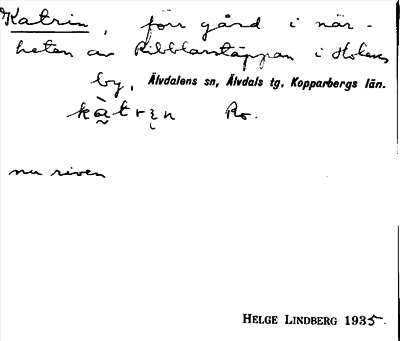 Katrin, förr gård i när-
heten av Ribblarstäppan i Holens
by, Älvdalens sn, Älvdals tg, Kopparbergs län.
kàtrın Ro.
nu riven
HELGE LINDBERG 1935.